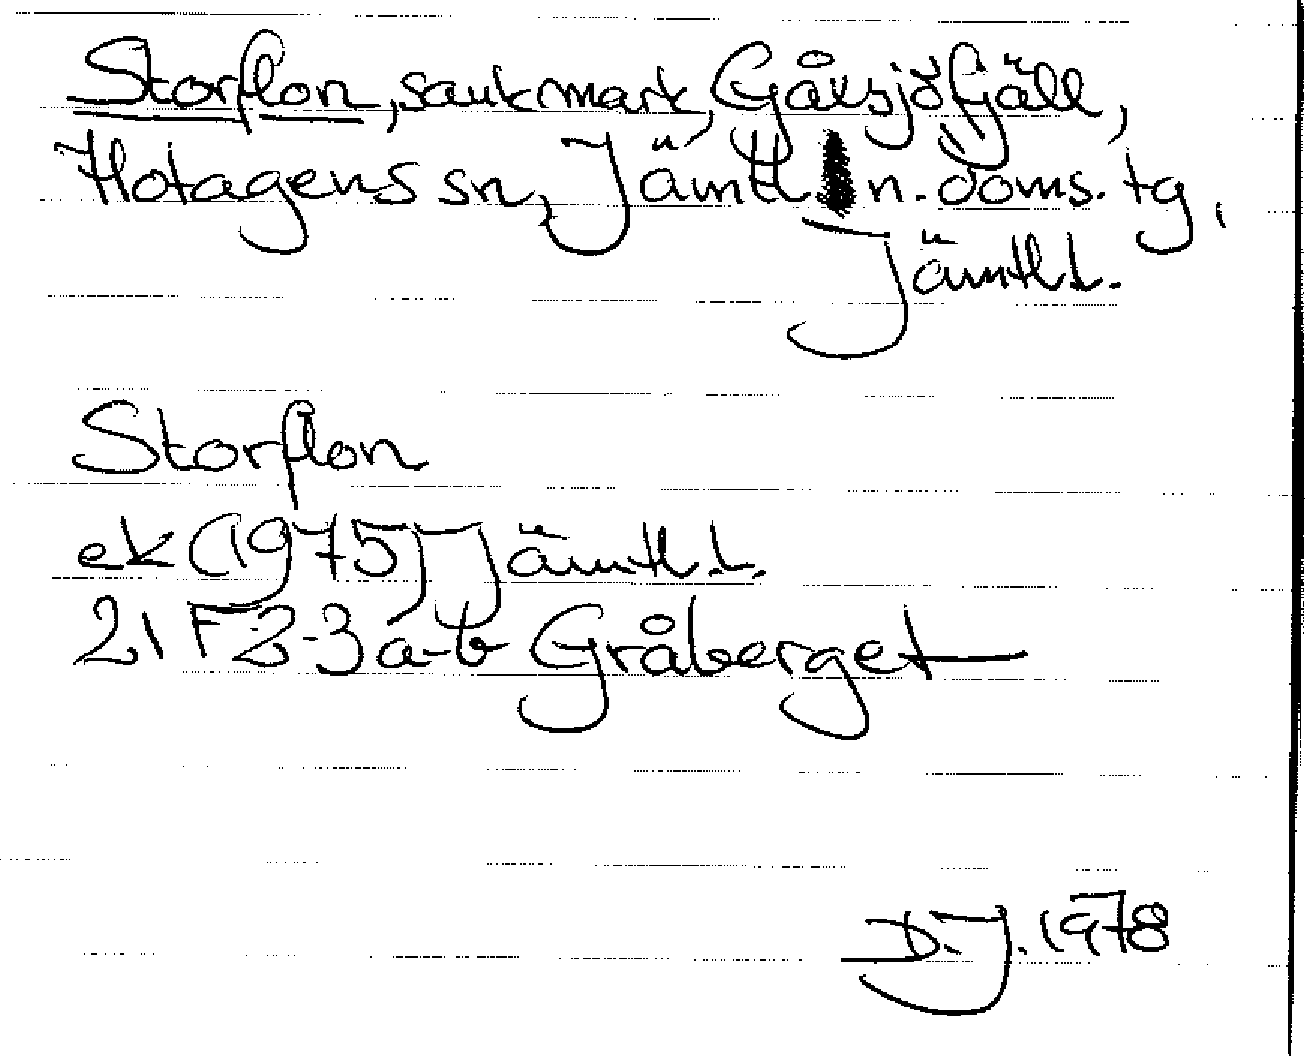 Storflon, sankmark, Gåxsjöfjäll,
Hotagens sn, Jämtl. n. doms. tg,
Jämtl.l.
Storflon
ek (1975) Jämtl.l.
21 F 2-3 a-b Gråberget
D.J. 1978